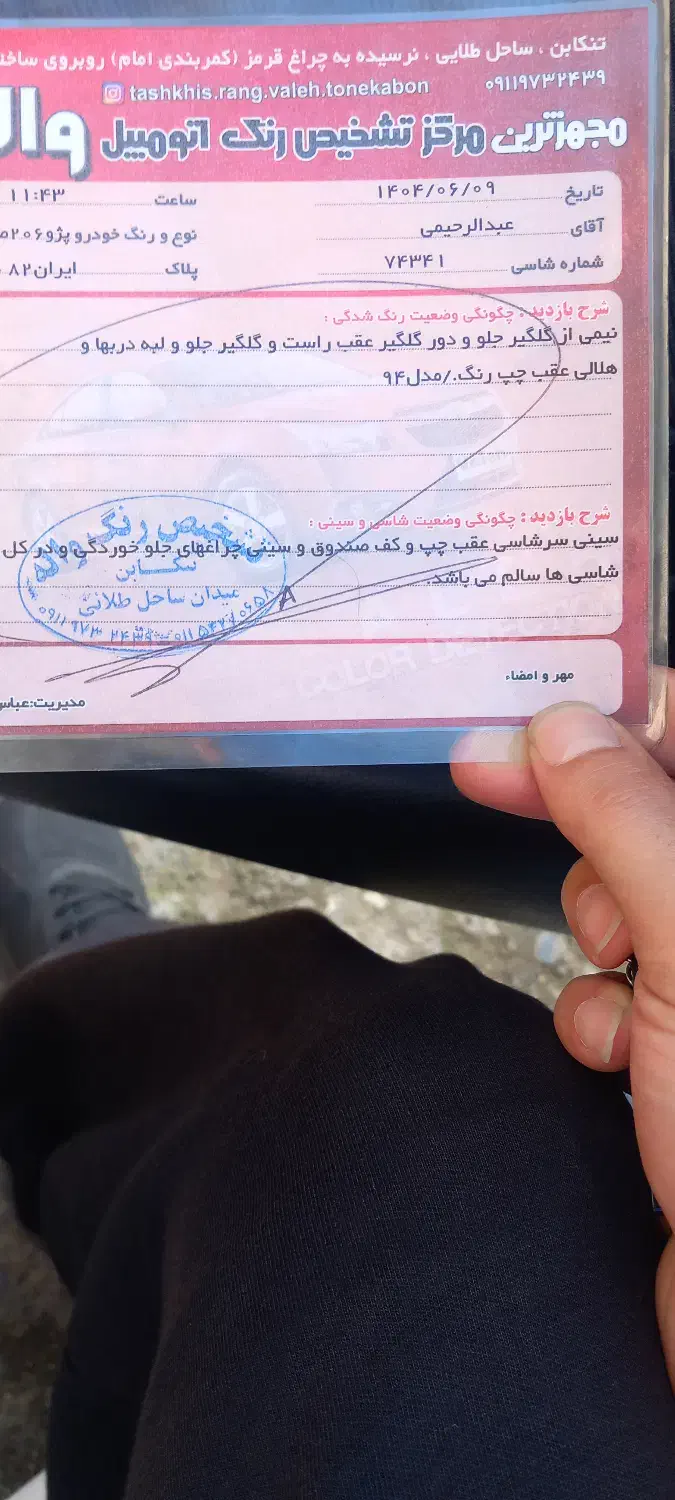 تنکابن ، ساحل طلایی ، نرسیده به چراغ قرمز (کمربندی امام) روبروی
۰۹۱۱۹۷۳۲۴۳۹
tashkhis.rang.valeh.tonekabon
مجهزترین مرکز تشخیص رنگ اتومبیل
تاریخ ۱۴۰۴/۰۶/۰۹ ساعت ۱۱:۴۳
آقای عبدالرحیمی نوع و رنگ خودرو پژو۲۰۶
شماره شاسی ۷۴۳۴۱ پلاک ایران۸۲
شرح بازدید : چگونگی وضعیت رنگ شدگی :
نیمی از گلگیر جلو و دور گلگیر عقب راست و گلگیر جلو و لبه دربها و
هلالی عقب چپ رنگ./مدل۹۴
شرح بازدید : چگونگی وضعیت شاسی و سینی :
سینی سرشاسی عقب چپ و کف صندوق و سینی چراغهای جلو خوردگی و در کل
شاسی ها سالم می باشد.
تشخیص رنگ واله
تنکابن
میدان ساحل طلائی
مهر و امضاء
مدیریت:عباس
COLOR DETECTION